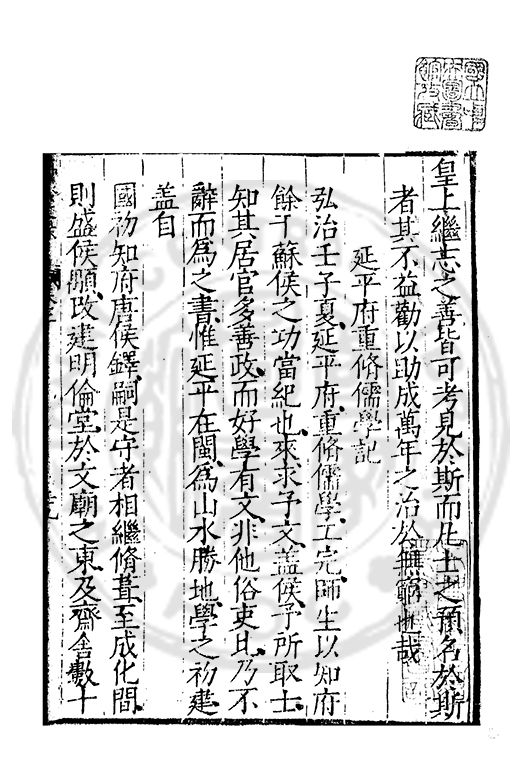 皇上繼志之善皆可考見於斯而此士之預名於斯
者其不益勸以助成萬年之治於無窮也哉
延平府重脩儒學記
弘治壬子夏延平府重脩儒學工完師生以知府
餘干蘇侯之功當紀也來求予文蓋侯予所取士
知其居官多善政而好學有文非他俗吏比乃不
辭而為之書惟延平在閩為山水勝地學之初建
盖自
國初知府唐侯鐸嗣是守者相繼脩葺至成化間
則盛侯顒改建明倫堂於文廟之東及齋舍數十